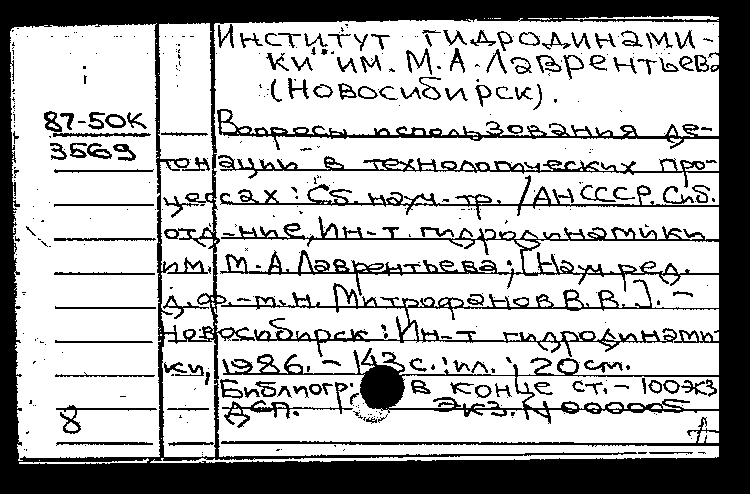 Институт гидродинами-
ки им. М.А. Лаврентьева
(Новосибирск).
87-50К
3569
Вопросы использования де-
тонации в технологических про-
цессах : Сб. науч. тр. / АН СССР. Сиб.
отд-ние, Ин-т гидродинамики
им. М.А. Лаврентьева ; [Науч. ред.
д.ф.-м.н. Митрофанов В.В.]. -
Новосибирск : Ин-т гидродинами-
ки, 1986. - 143 с. : ил. ; 20 cm.
Библиогр. в конце ст. - 100 экз
Деп. Экз. N 000005.
8